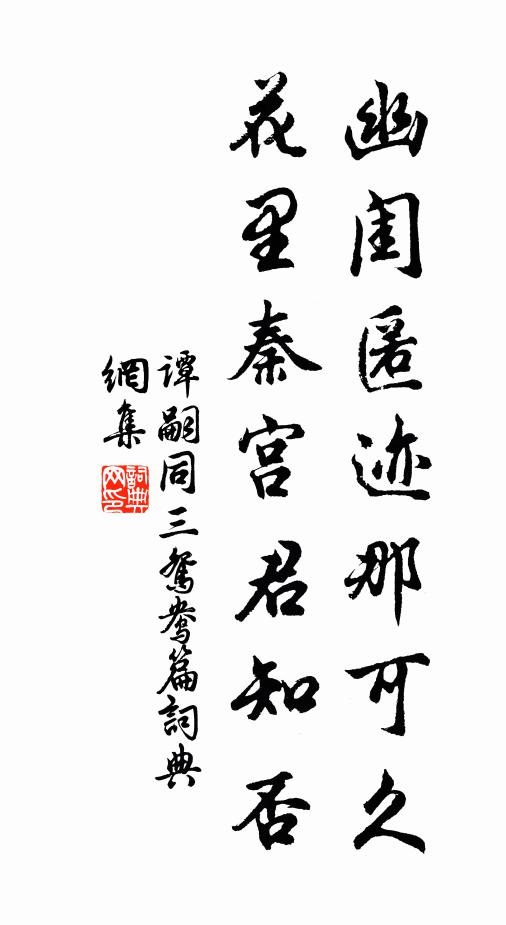 幽闺匿迹那可久
花里秦宫君知否
谭嗣同三鸳鸯篇詞典
網集
詞典
网印